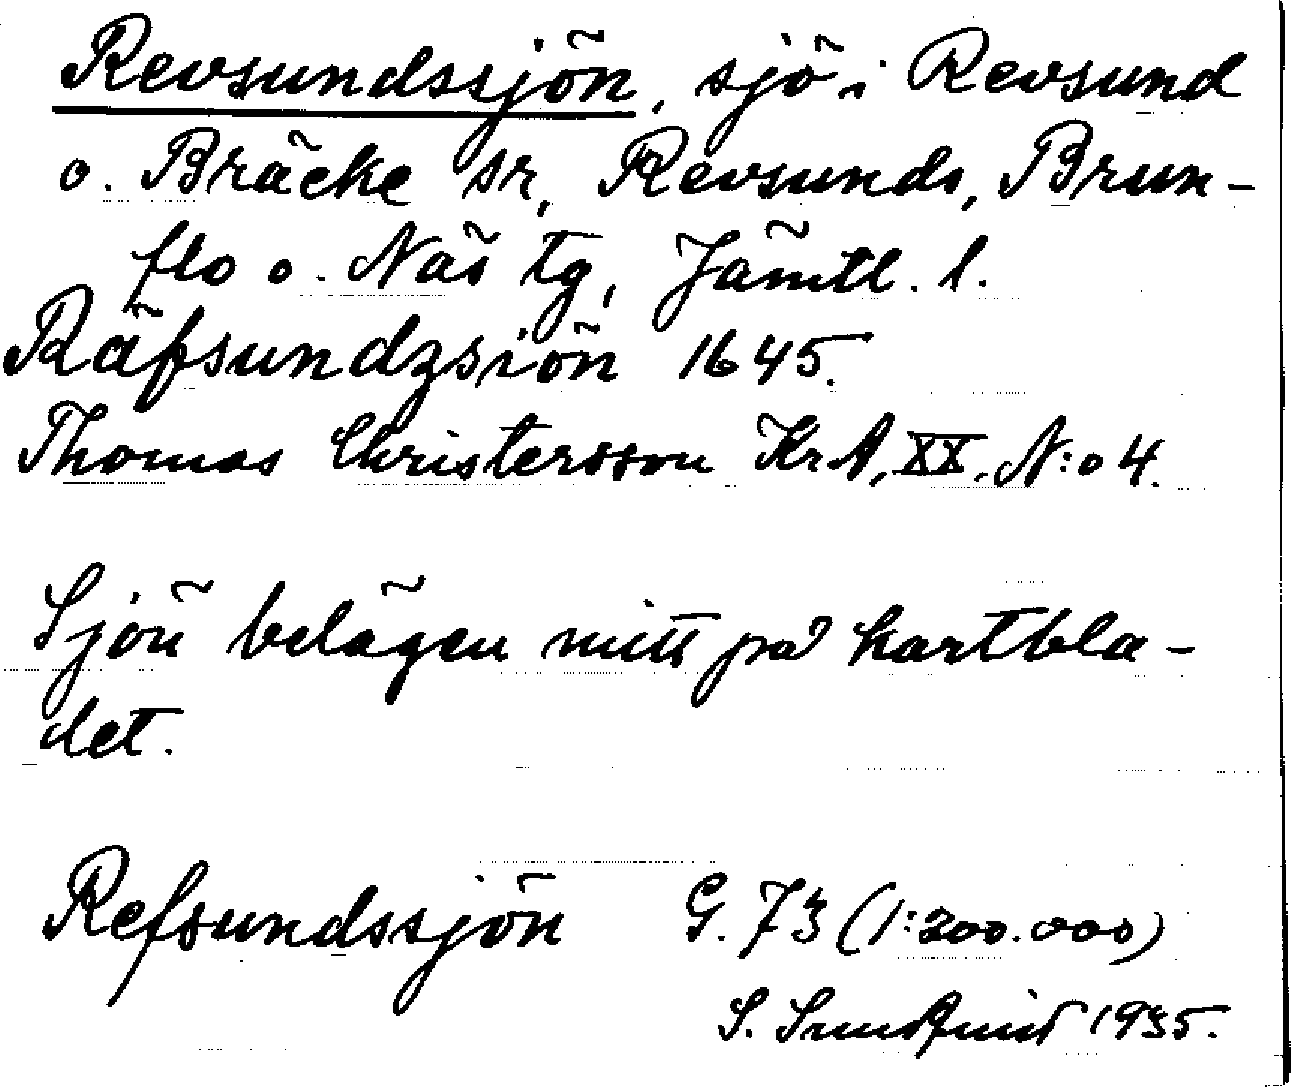 Revsundssjön, sjö i Revsund
o. Bräcke sr, Revsunds, Brun-
flo o. Näs tg, Jämtl. l.
Räfsundzsiön 1645.
Thomas Christersson KrA, XX, N:o 4.
Sjön belägen mitt på kartbla-
det.
Refsundssjön G. 73 (1:200.000)
S. Sundqvist 1935.